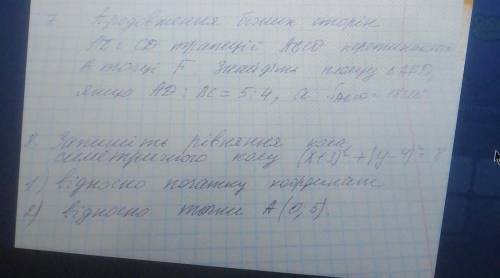 7. Продовження бічних сторін
AB і CD трапеції ABCD перетинаються
в точці F. Знайдіть площу △AFD,
якщо AD : BC = 5:4, а S
8. Запишіть рівняння кола,
симетричного колу (x+3)² + (y-4)² = 8
1) відносно початку координат
2) відносно точки A (0,5).